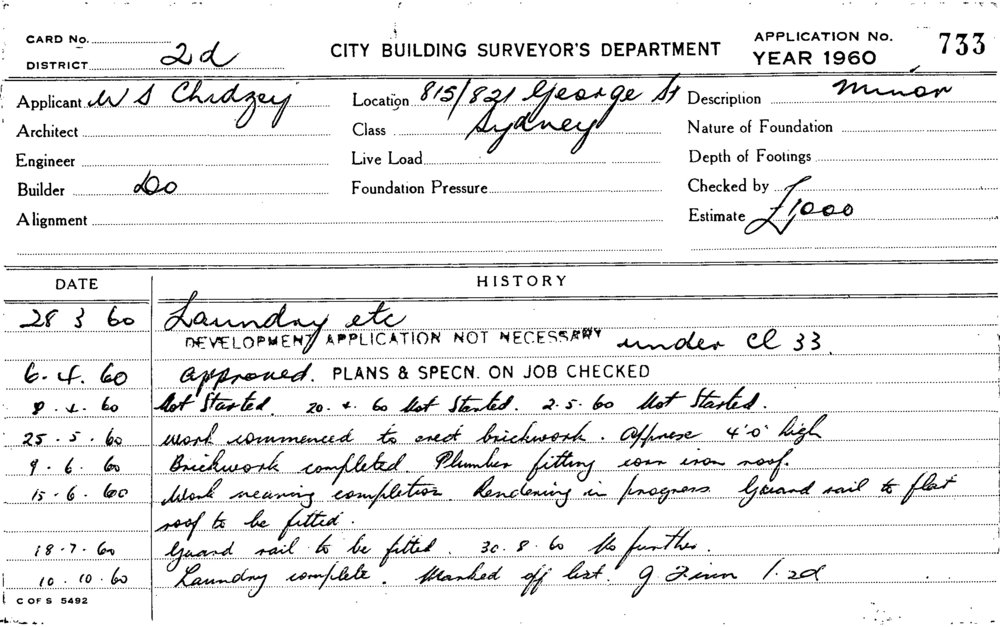 CARD No.
DISTRICT 2d
CITY BUILDING SURVEYOR'S DEPARTMENT
APPLICATION No. 733
YEAR 1960
Applicant W S Chidzey
Location 815/821 George St
Sydney
Description Minor
Architect
Class
Nature of Foundation
Engineer
Live Load
Depth of Footings
Builder Do
Foundation Pressure
Checked by
Alignment
Estimate £1,000
DATE HISTORY
28 3 60 Laundry etc
DEVELOPMENT APPLICATION NOT NECESSARY under Cl 33.
6.4.60 approved. PLANS & SPECN. ON JOB CHECKED
8.4.60 Not Started. 20.4.60 Not Started. 2.5.60 Not Started.
25.5.60 Work commenced to erect brickwork. Approx 4'0" high
9.6.60 Brickwork completed. Plumber fitting corr iron roof.
15.6.60 Work nearing completion. Rendering in progress. Guard rail to flat
roof to be fitted.
18.7.60 Guard rail to be fitted. 30.8.60 No further.
10.10.60 Laundry complete. Marked off list. 2d
C OF S 5492